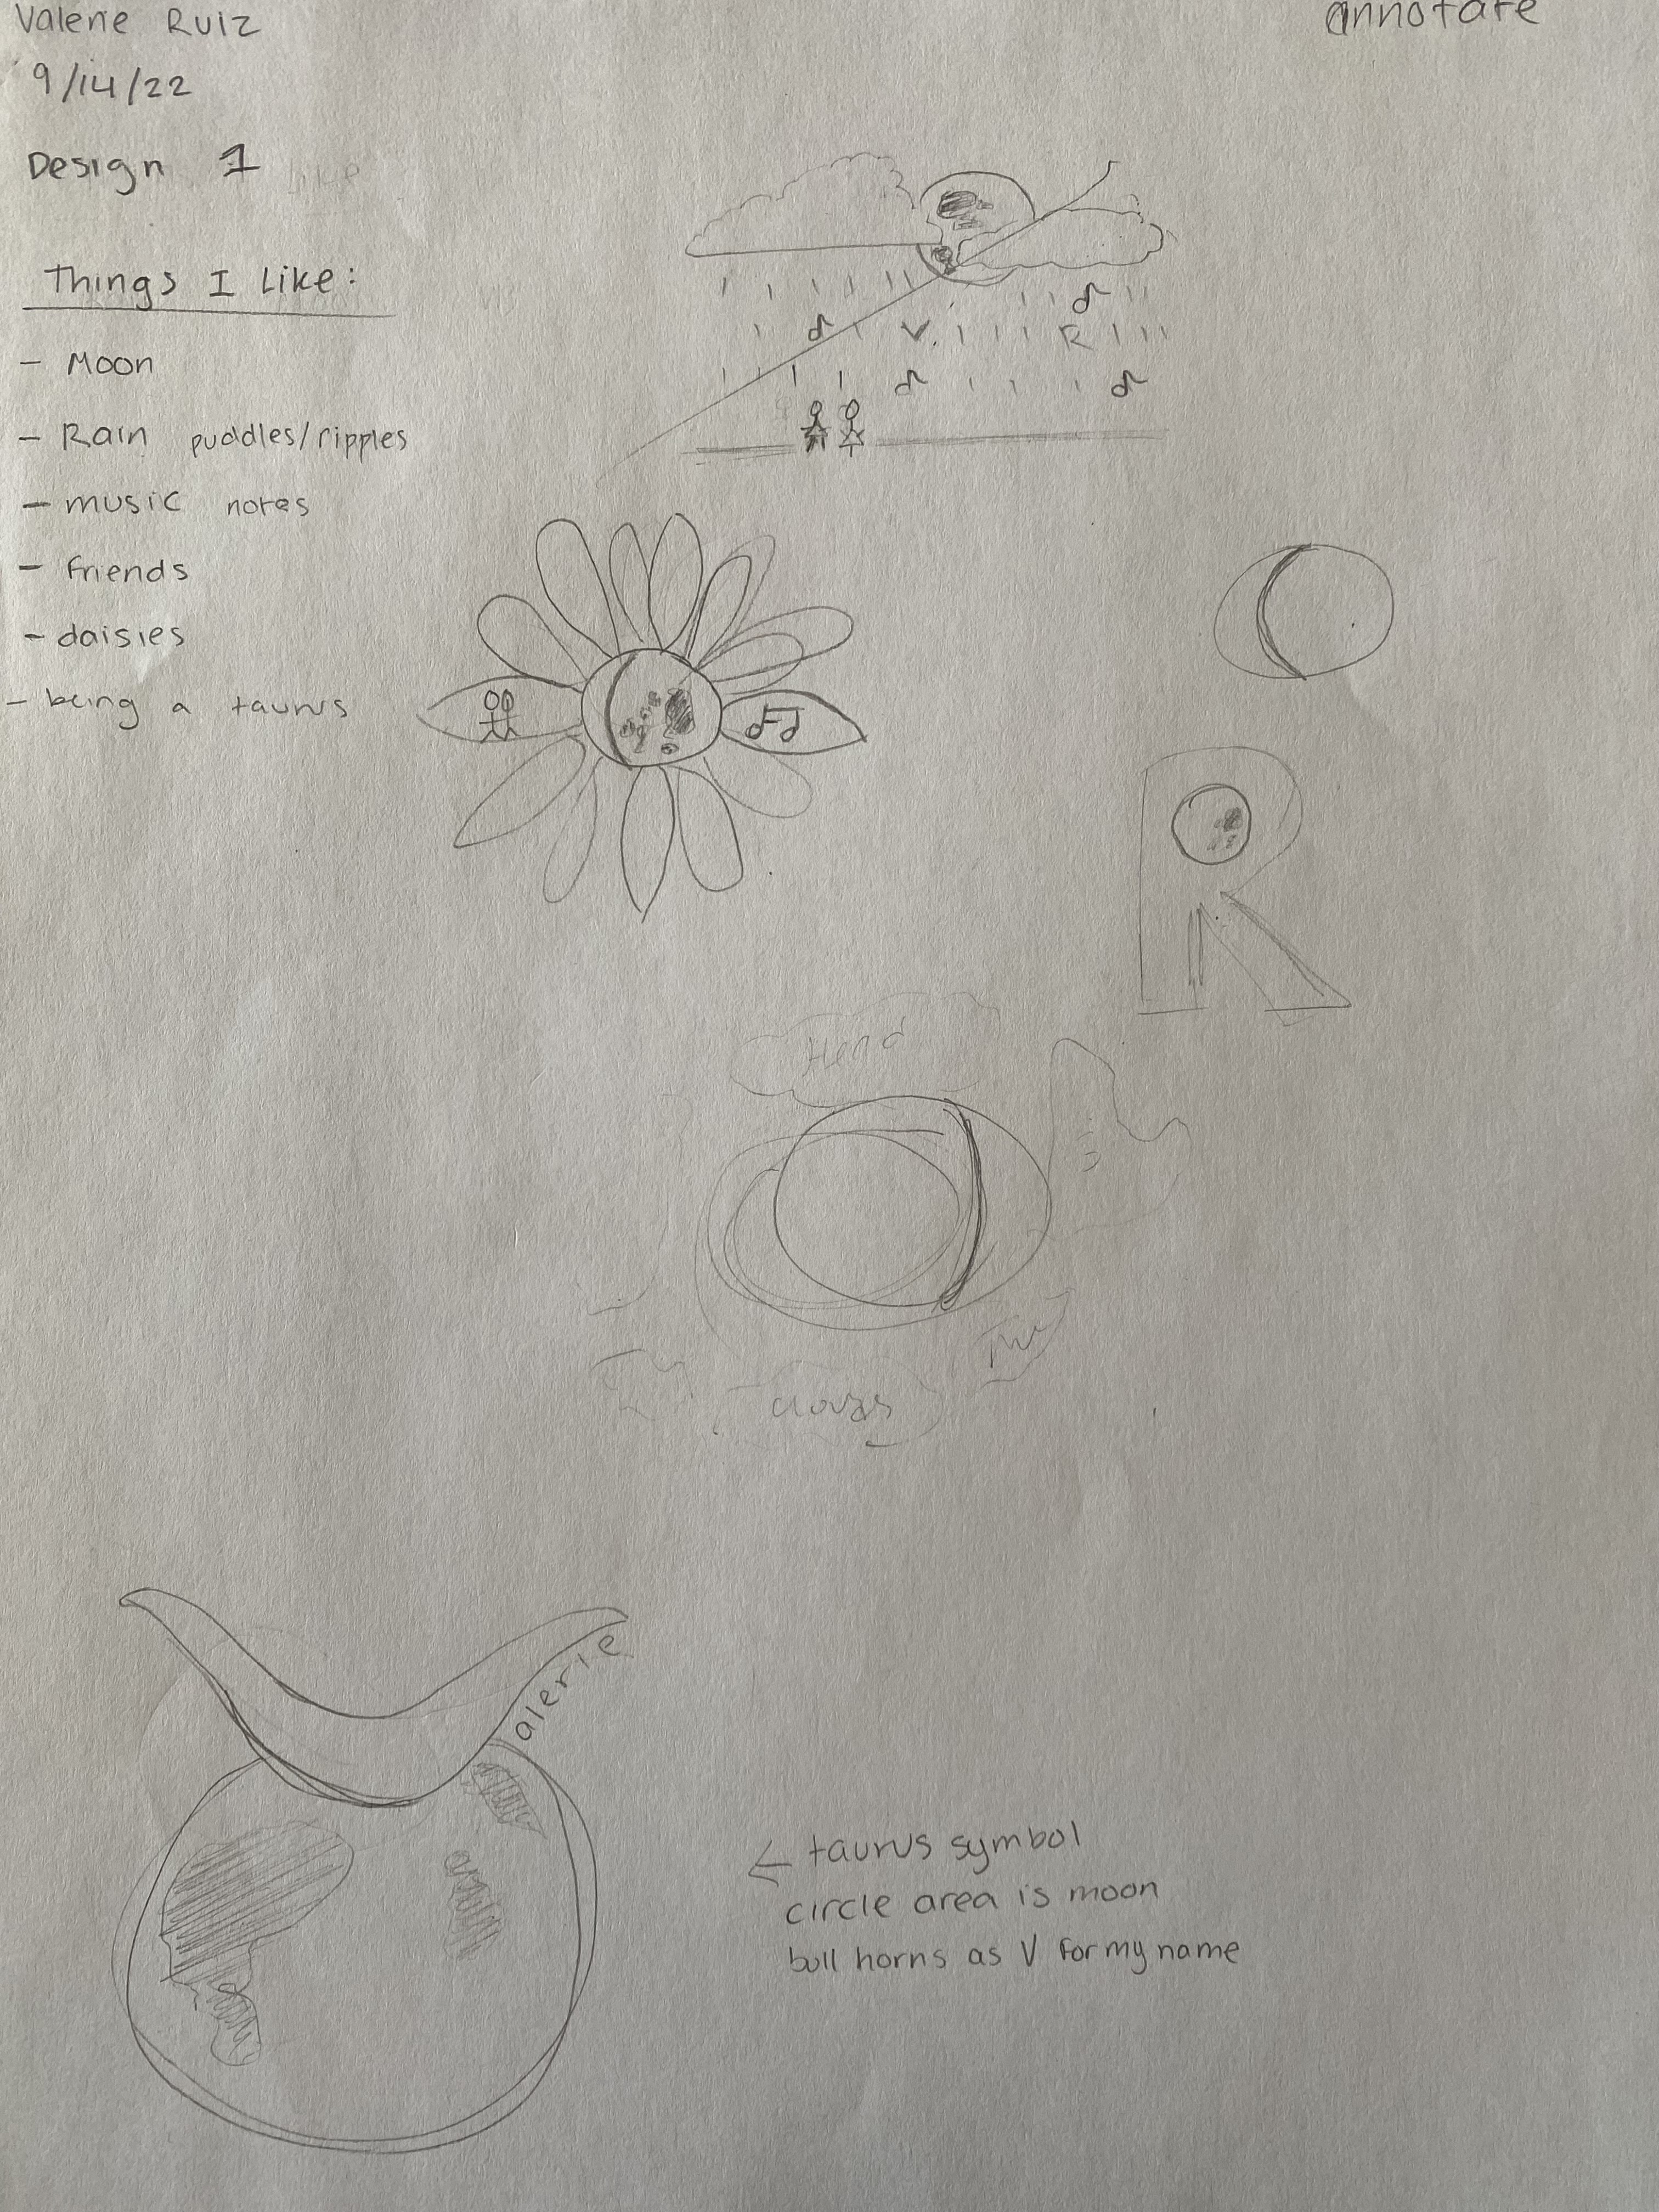 Valerie Ruiz
annotate
9/14/22
Design 1
Things I Like:
- Moon
- Rain puddles/ripples
- music notes
- friends
- daisies
- being a taurus
V.
R
R
clouds
alerie
← taurus symbol
circle area is moon
bull horns as V for my name